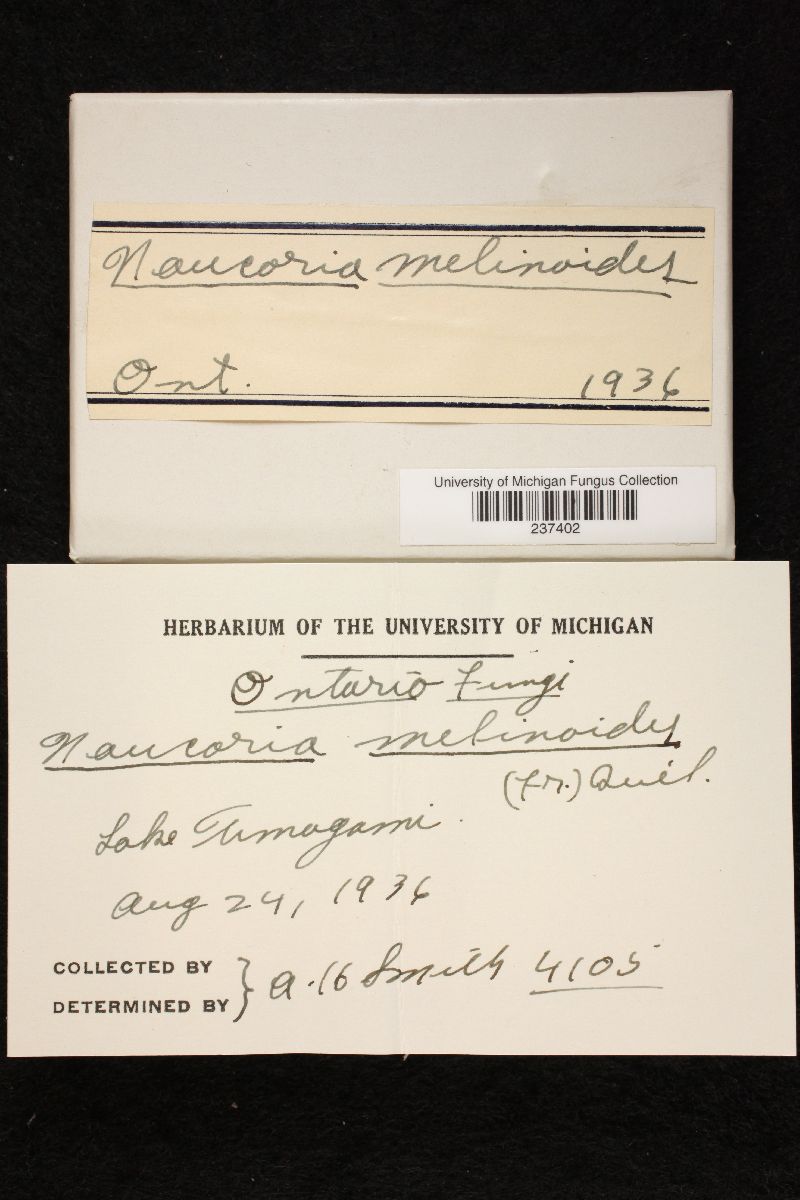 Naucoria melinoides
Ont. 1936
University of Michigan Fungus Collection
237402
HERBARIUM OF THE UNIVERSITY OF MICHIGAN
Ontario Fungi
Naucoria melinoides
(Fr.) Quél.
Lake Timagami
Aug 24, 1936
COLLECTED BY
DETERMINED BY } A. H Smith 4105